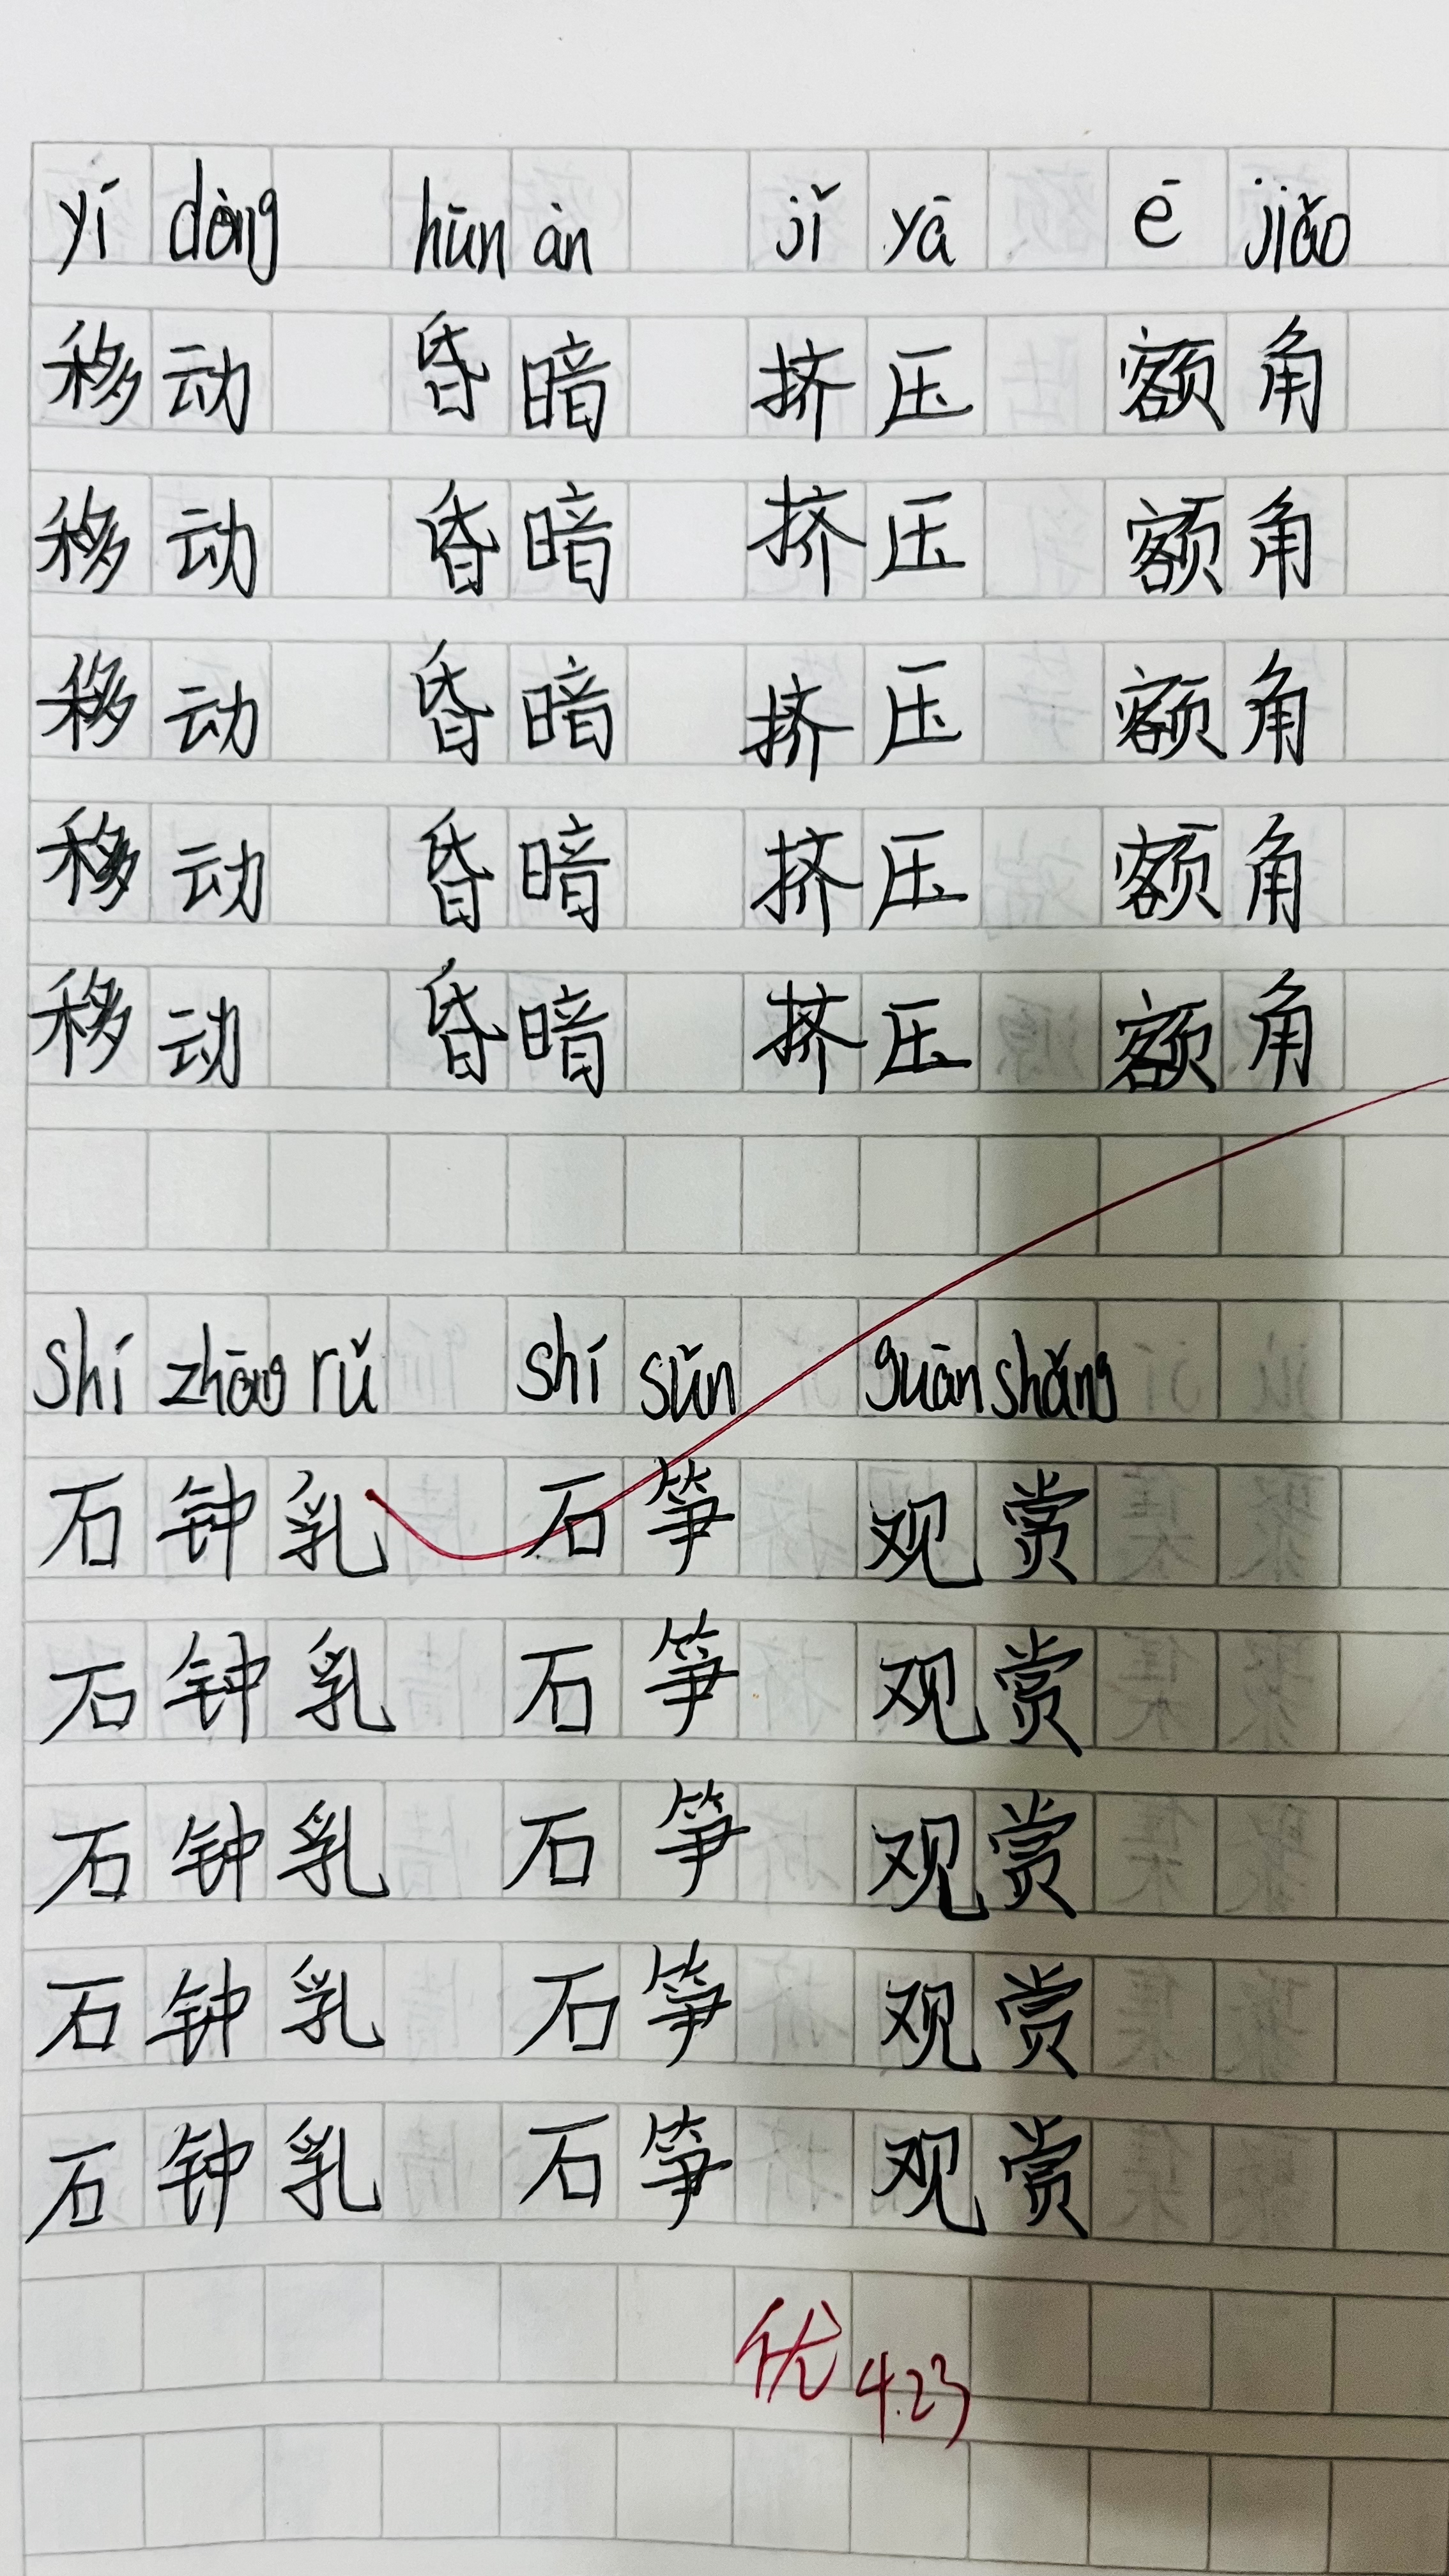 yí dòng hūn àn jǐ yā ē jiǎo
移动 昏暗 挤压 额角
移动 昏暗 挤压 额角
移动 昏暗 挤压 额角
移动 昏暗 挤压 额角
移动 昏暗 挤压 额角
shí zhōng rǔ shí sǔn guān shǎng
石钟乳 石笋 观赏
石钟乳 石笋 观赏
石钟乳 石笋 观赏
石钟乳 石笋 观赏
石钟乳 石笋 观赏
优 4.23